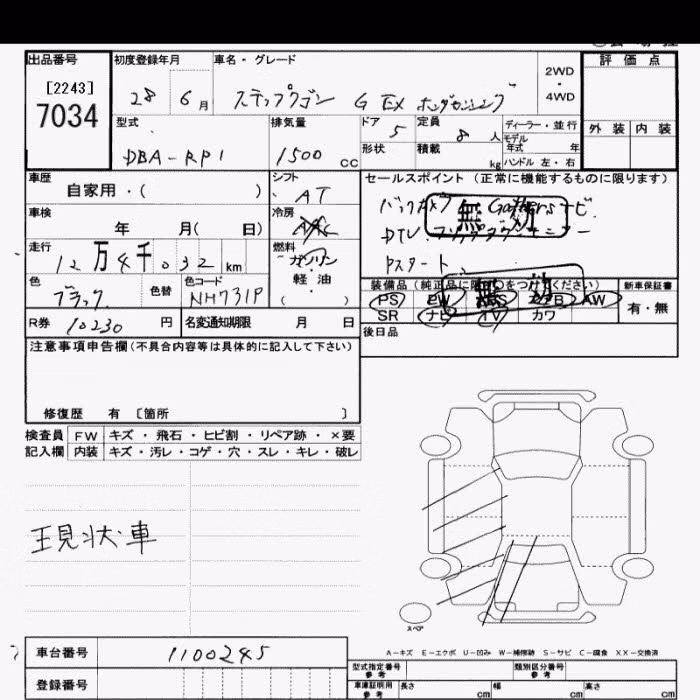 出品番号 初度登録年月 車名・グレード 2WD・4WD 評価点
[2243]
7034
28 6月 ステップワゴン G EX ホンダセンシング
型式 排気量 ドア 定員 ディーラー・並行 外装 内装
DBA-RP1 1500 CC 5 8人 モデル年式 年
形状 積載 kg ハンドル 左・右
車歴 シフト セールスポイント (正常に機能するものに限ります)
自家用・( ) AT
車検 冷房 バックカメラ Gathersナビ
年 月( 日) AAC 無効
走行 燃料 DTV フリップダウンモニター
12万4千032km ガソリン Pスタート
色 色替 色コード 軽油
ブラック NH731P ( ) 装備品 (純正品に限り○をつけてください) 新車保証書
無効
R券 10230円 名変通知期限 月 日 PS PW エアB AW 有・無
SR ナビ TV カワ
後日品
注意事項申告欄(不具合内容等は具体的に記入して下さい)
修復歴 有 〔箇所 〕
検査員 FW キズ・飛石・ヒビ割・リペア跡・×要
記入欄 内装 キズ・汚レ・コゲ・穴・スレ・キレ・破レ
現状車
スペア
A-キズ E-エクボ U-凹み W-補修跡 S-サビ C-腐食 XX-交換済
車台番号 1100245
型式指定番号 参考 類別区分番号 参考
登録番号
車庫証明用 参考 長さ cm 幅 cm 高さ cm